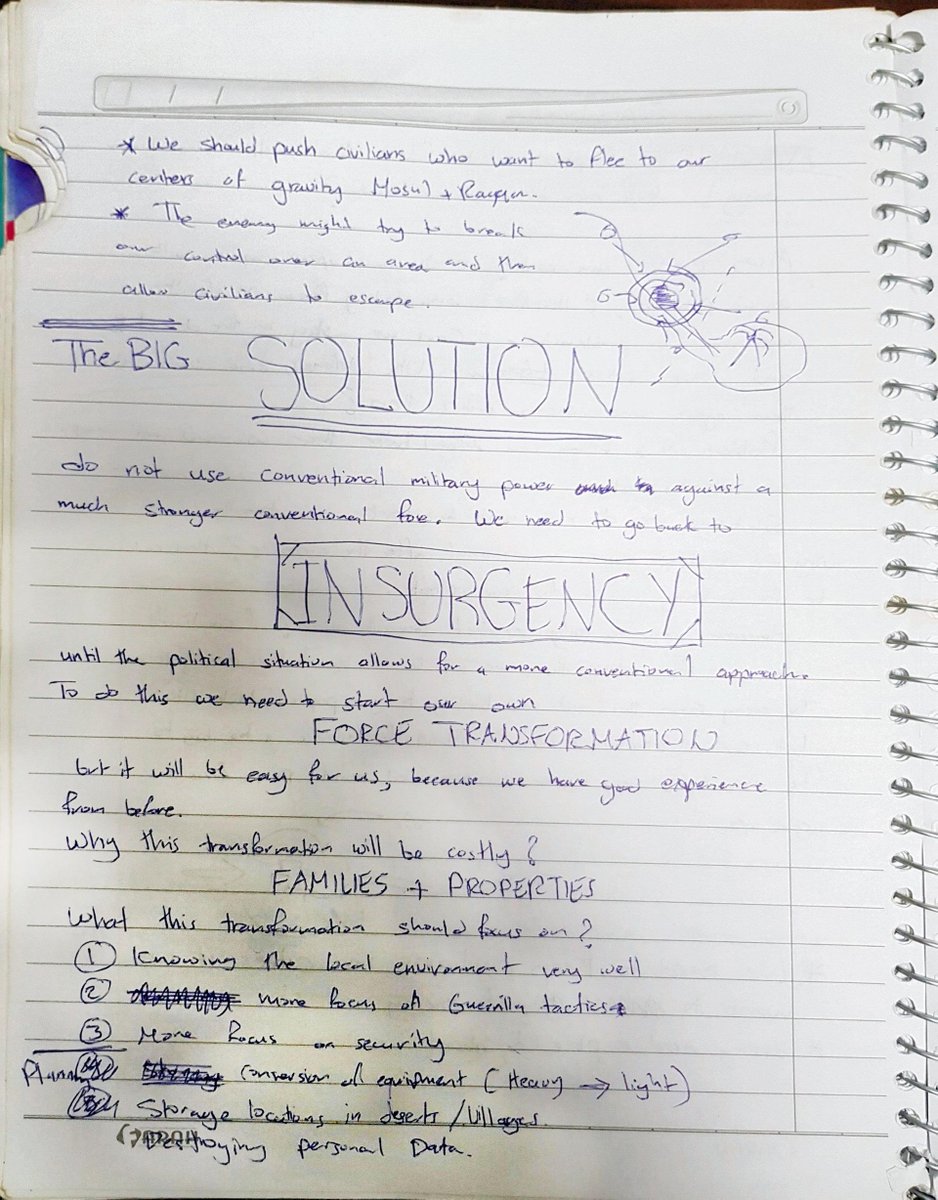 * We should push civilians who want to flee to our
centers of gravity Mosul + Raqqa.
* The enemy might try to break
our control over an area and then
allow civilians to escape.
The BIG SOLUTION
do not use conventional military power against a
much stronger conventional foe. We need to go back to
INSURGENCY
until the political situation allows for a more conventional approach.
To do this we need to start our own
FORCE TRANSFORMATION
but it will be easy for us, because we have good experience
from before.
Why this transformation will be costly?
FAMILIES + PROPERTIES
What this transformation should focus on?
① Knowing the local environment very well
② more focus on Guerilla tactics
③ More focus on security
Planning conversion of equipment (Heavy → light)
Storage locations in deserts / Villages.
Destroying personal Data.